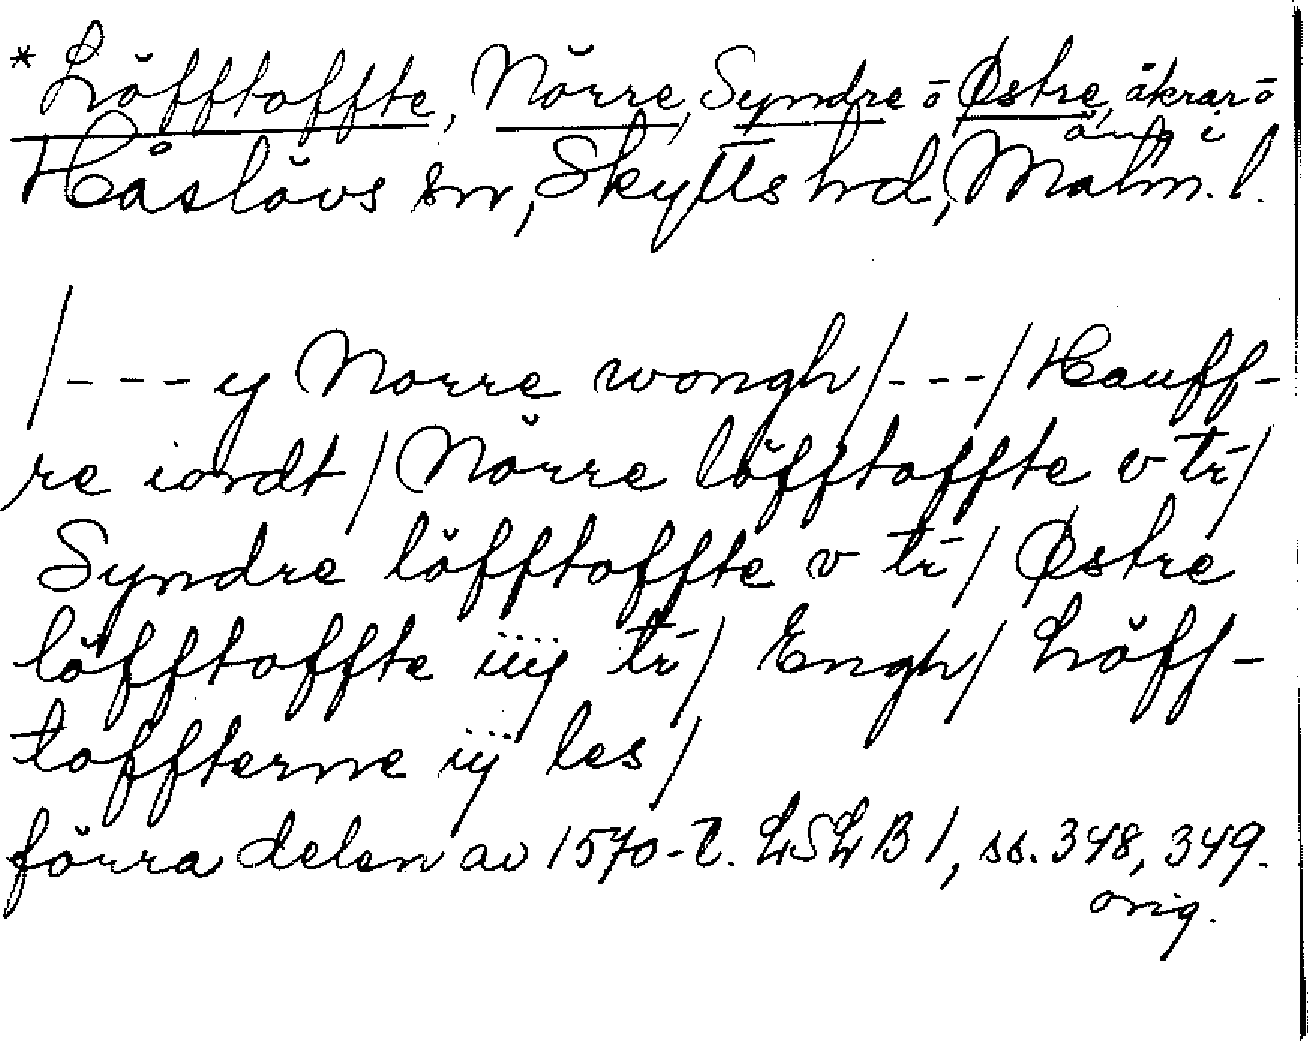 *Löfftoffte, Nörre, Syndre o Østre, åkrar o
äng i
Håslövs sn, Skytts hd, Malm. l.
/- - - y Norre wongh/- - -/ Hauff-
re iordt/ Nörre löfftoffte v tr/
Syndre löfftoffte v tr/ Østre
löfftoffte iiij tr/ Engh/ Löff-
toffterne iij les/
förra delen av 1570-t. LSLB 1, ss. 348, 349.
orig.